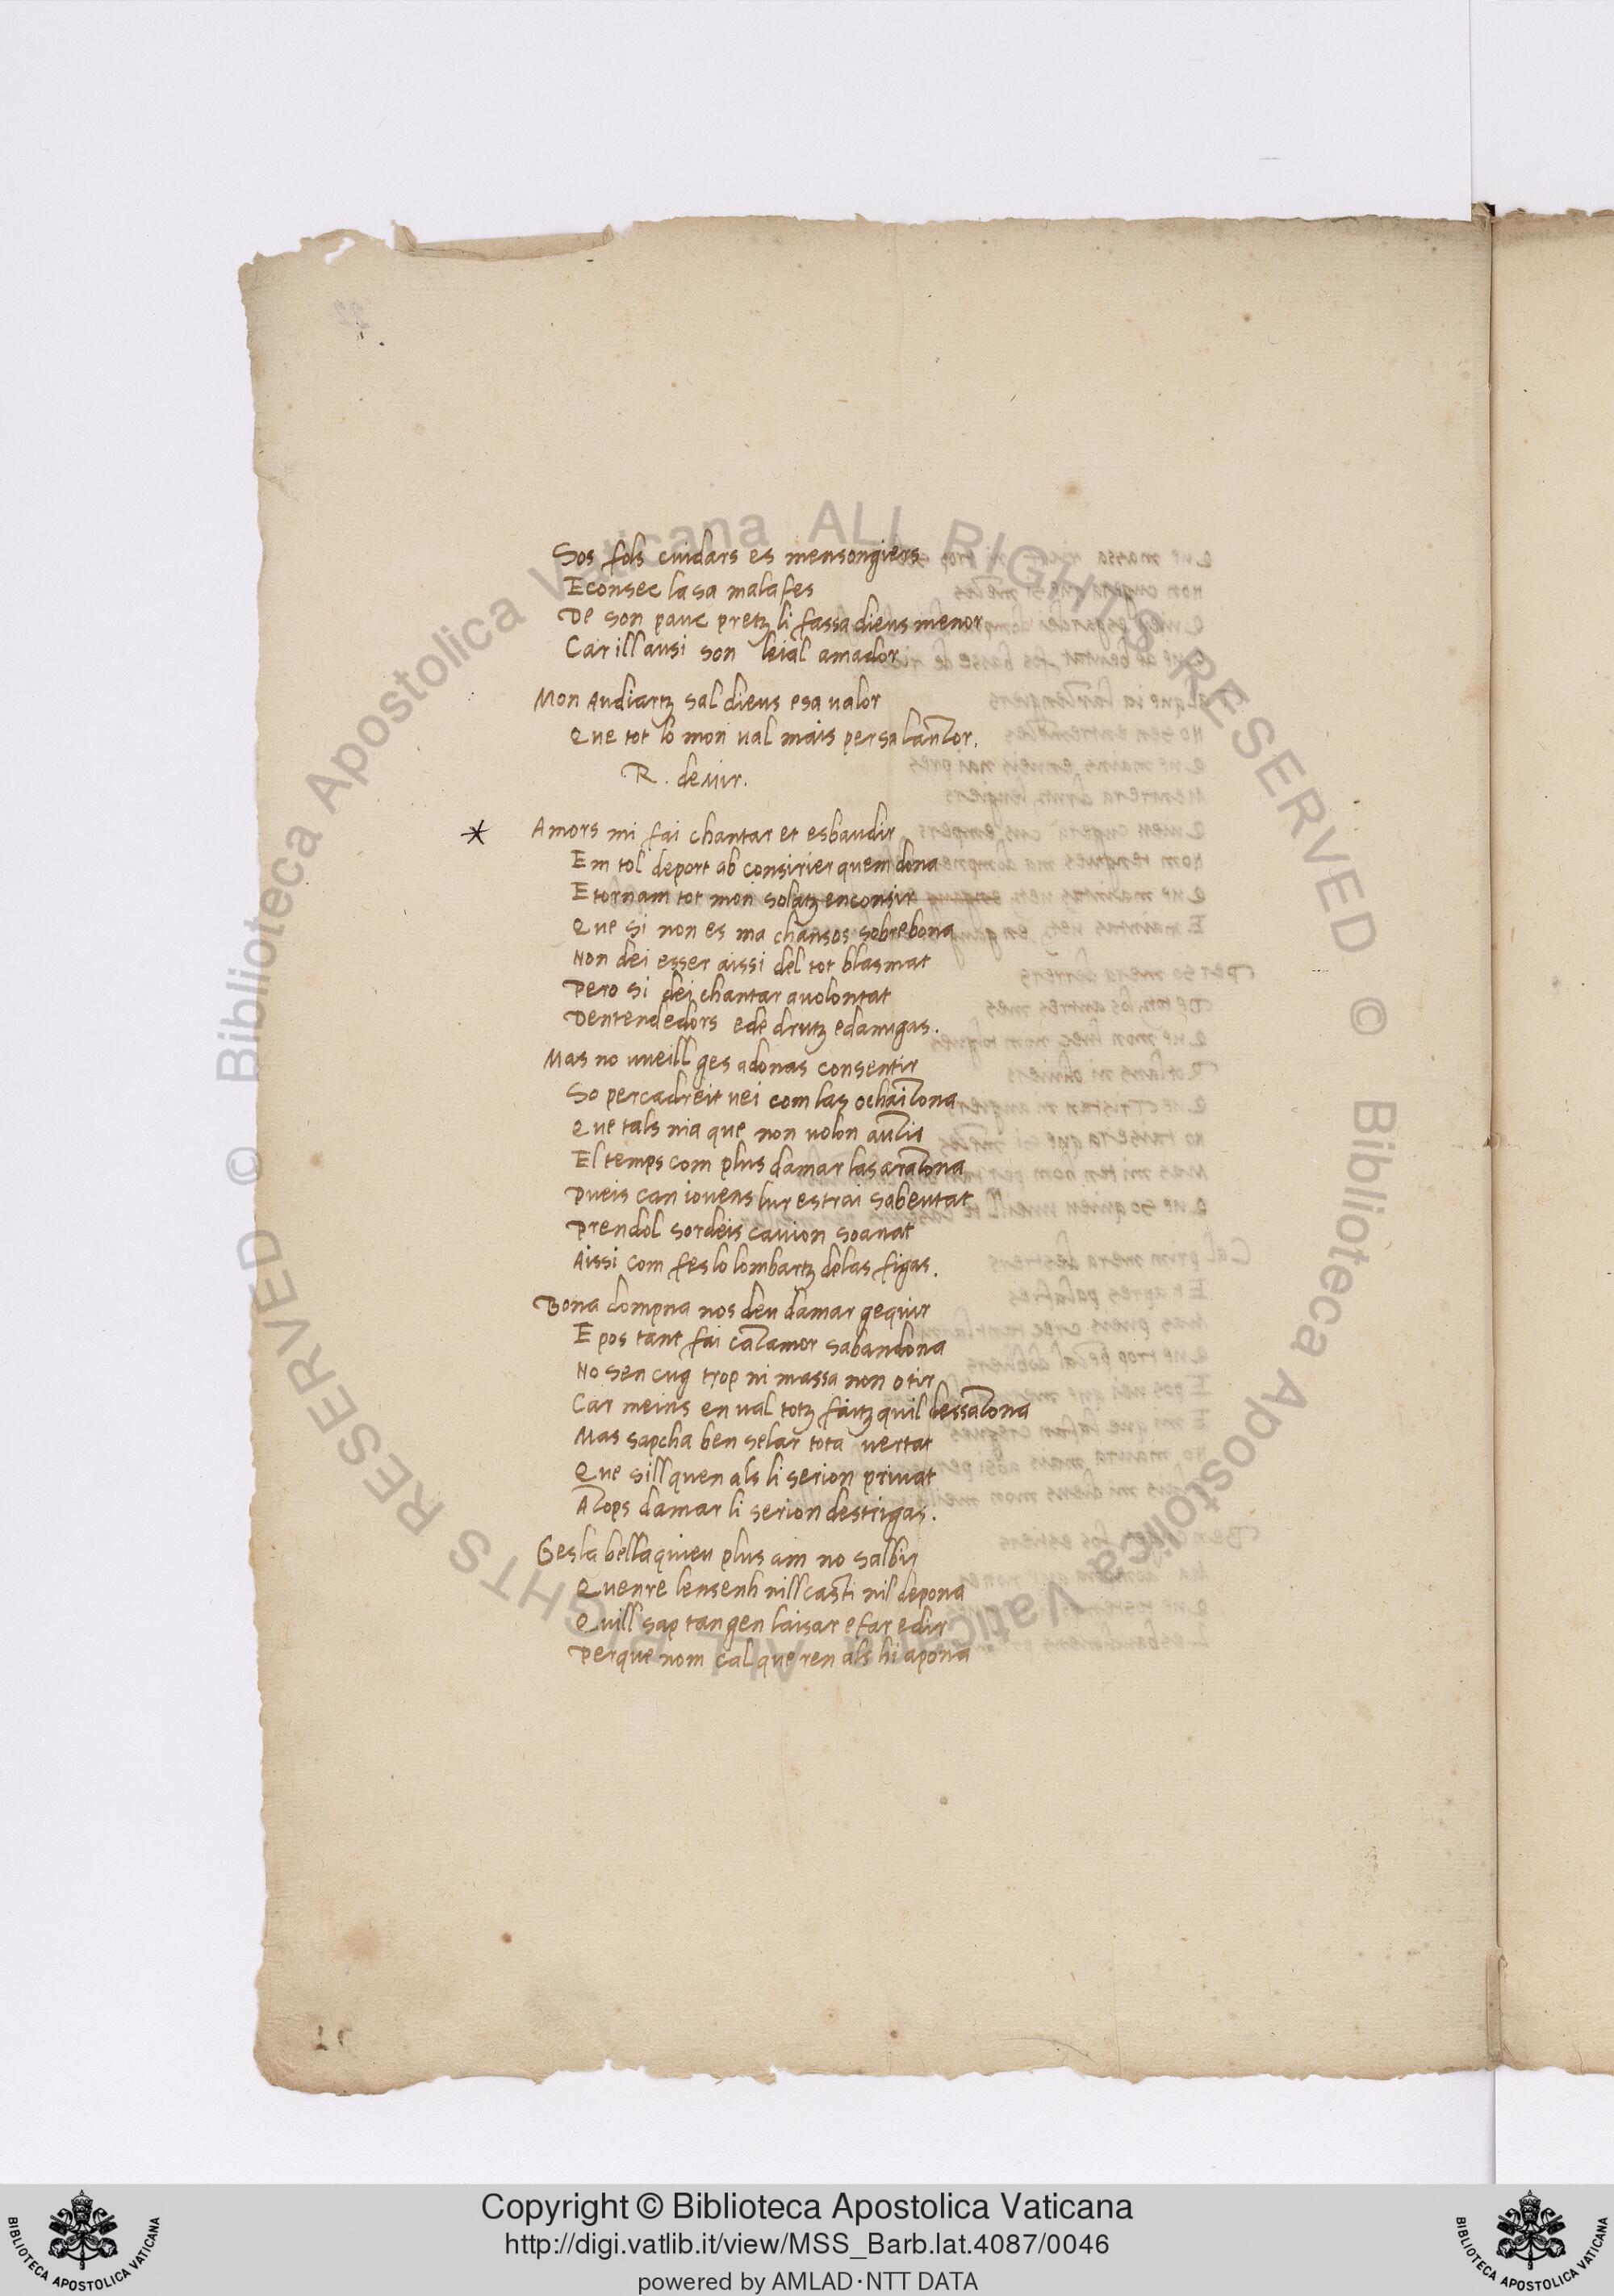 Sos fols cuidars es mensongiers
Econsec lasa malafes
De son pauc pretz li fassa dieus menor
Car ill ausi son leial amador
Mon Audiartz sal dieus esa valor
Que tot lo mon ual mais persa lauzor.
R. deuir.
* Amors mi fai chantar et esbaudir
Em tol deport ab consirier quem dona
Etornam tot mon solatz enconsir
Que si non es ma chansos sobrebona
Non dei esser aissi del tot blasmat
Pero si dei chantar auolontat
Dentendedors ede drutz edamigas.
Mas no uueill ges adonas consentir
So percadreit uei com las ochaizona
Que tals nia que non uolon auzir
El temps com plus damar las arazona
Pueis can iouens lur estrai sabeutat
Prendol sordeis cauion soanat
Aissi com feslo lombartz delas figas.
Bona dompna nos deu damar gequir
E pos tant fai cazamor sabandona
No sen cug trop ni massa non o tir
Car meins en ual totz faitz quil dessazona
Mas sapcha ben selar tota uertat
Que sill quen als li serion priuat
Azops damar li serion destrigas.
Gesla bella quieu plus am no salbir
Quenre lensenh nill casti nil depona
Quill sap tangen laisar efar edir
Perque nom cal que ren als hi apona
Copyright © Biblioteca Apostolica Vaticana
http://digi.vatlib.it/view/MSS_Barb.lat.4087/0046
powered by AMLAD·NTT DATA
BIBLIOTECA APOSTOLICA VATICANA
BIBLIOTECA APOSTOLICA VATICANA
© Biblioteca Apostolica Vaticana ALL RIGHTS RESERVED
© Biblioteca Apostolica Vaticana ALL RIGHTS RESERVED